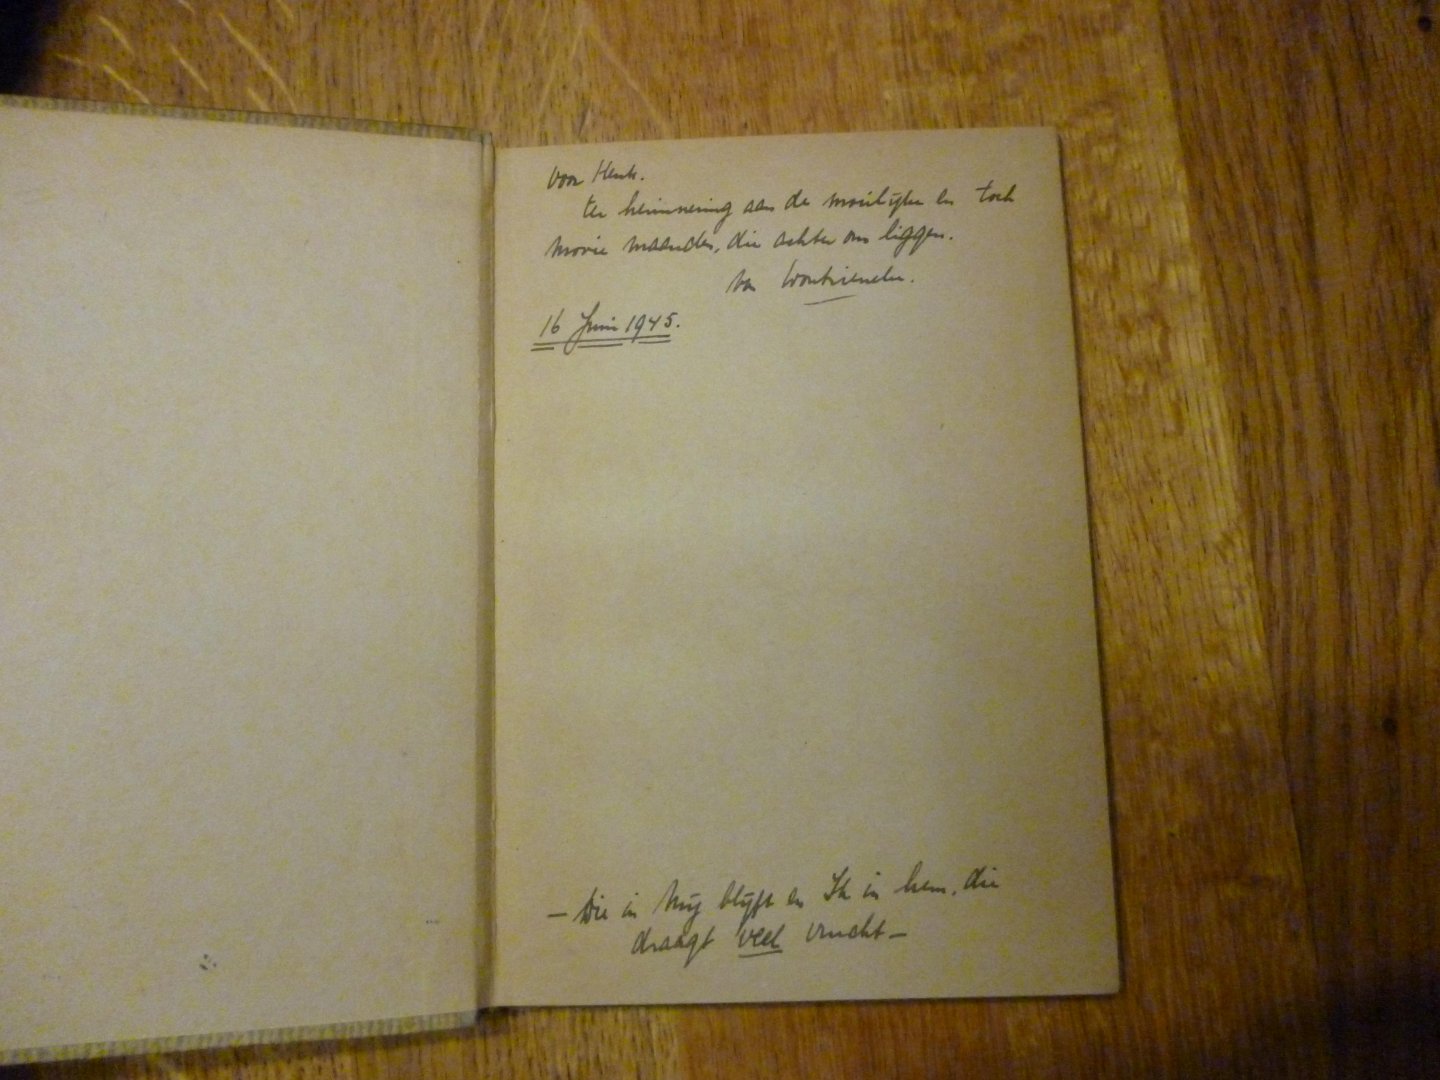 Voor Henk.
ter herinnering aan de moeilijke en toch
mooie maanden, die achter ons liggen.
van
16 Juni 1945.
— Die in Mij blijft en Ik in hem, die
draagt veel vrucht —